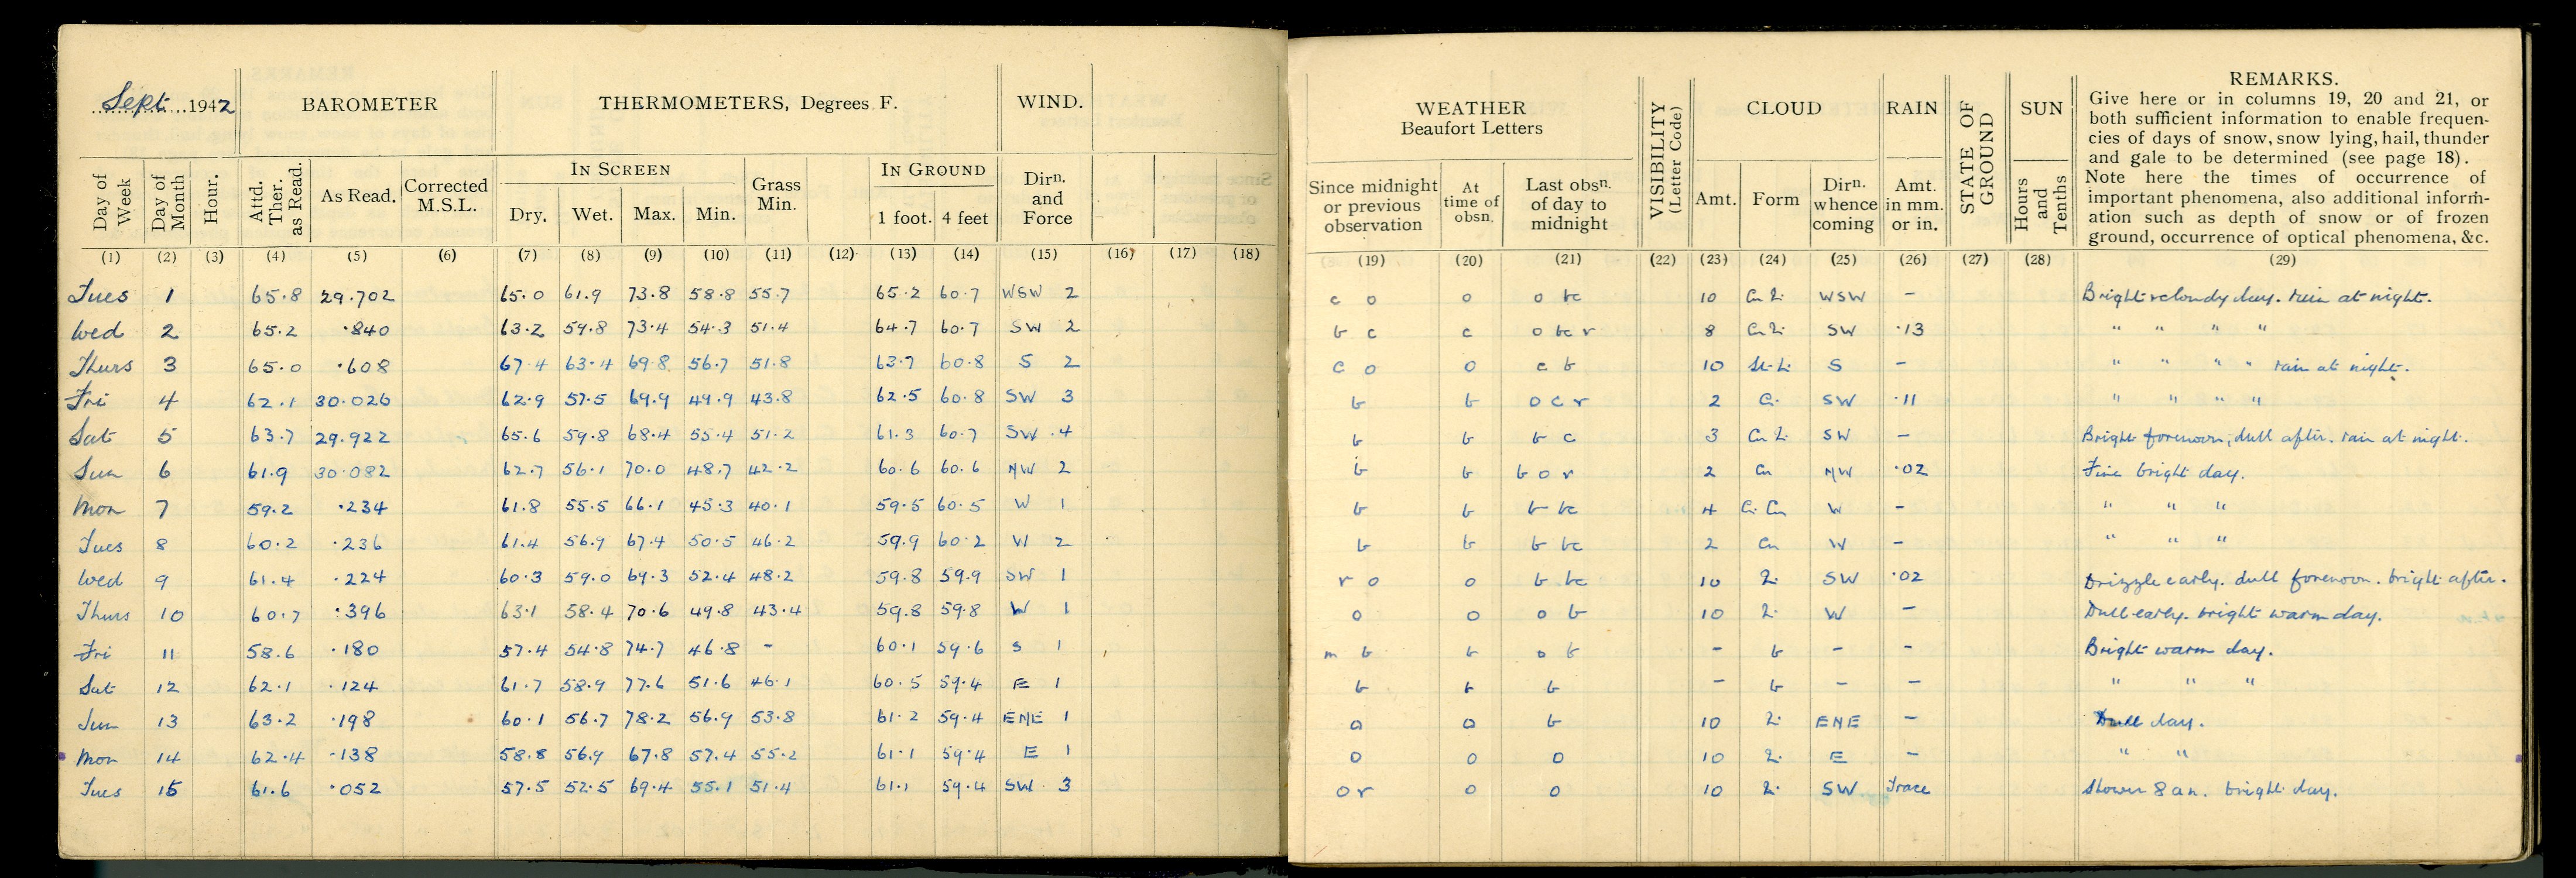 Sept. 1942
BAROMETER
THERMOMETERS, Degrees F.
WIND.
Day of Week
Day of Month
Hour.
Attd. Ther. as Read.
As Read.
Corrected M.S.L.
IN SCREEN
Dry. Wet. Max. Min.
Grass Min.
IN GROUND
1 foot. 4 feet
Dirn. and Force
(1) (2) (3) (4) (5) (6) (7) (8) (9) (10) (11) (12) (13) (14) (15) (16) (17) (18)
Tues 1 65.8 29.702 65.0 61.9 73.8 58.8 55.7 65.2 60.7 WSW 2
Wed 2 65.2 .840 63.2 59.8 73.4 54.3 51.4 64.7 60.7 SW 2
Thurs 3 65.0 .608 67.4 63.4 69.8 56.7 51.8 63.7 60.8 S 2
Fri 4 62.1 30.026 62.9 57.5 69.9 49.9 43.8 62.5 60.8 SW 3
Sat 5 63.7 29.922 65.6 59.8 68.4 55.4 51.2 61.3 60.7 SW 4
Sun 6 61.9 30.082 62.7 56.1 70.0 48.7 42.2 60.6 60.6 NW 2
Mon 7 59.2 .234 61.8 55.5 66.1 45.3 40.1 59.5 60.5 W 1
Tues 8 60.2 .236 61.4 56.9 67.4 50.5 46.2 59.9 60.2 W 2
Wed 9 61.4 .224 60.3 59.0 69.3 52.4 48.2 59.8 59.9 SW 1
Thurs 10 60.7 .396 63.1 58.4 70.6 49.8 43.4 59.8 59.8 W 1
Fri 11 58.6 .180 57.4 54.8 74.7 46.8 - 60.1 59.6 S 1
Sat 12 62.1 .124 61.7 58.9 77.6 51.6 46.1 60.5 59.4 E 1
Sun 13 63.2 .198 60.1 56.7 78.2 56.9 53.8 61.2 59.4 ENE 1
Mon 14 62.4 .138 58.8 56.9 67.8 57.4 55.2 61.1 59.4 E 1
Tues 15 61.6 .052 57.5 52.5 69.4 55.1 51.4 61.1 59.4 SW 3
WEATHER
Beaufort Letters
Since midnight or previous observation
At time of obsn.
Last obsn. of day to midnight
VISIBILITY (Letter Code)
CLOUD
Amt. Form
Dirn. whence coming
RAIN
Amt. in mm. or in.
STATE OF GROUND
SUN
Hours and Tenths
REMARKS.
Give here or in columns 19, 20 and 21, or
both sufficient information to enable frequen-
cies of days of snow, snow lying, hail, thunder
and gale to be determined (see page 18).
Note here the times of occurrence of
important phenomena, also additional inform-
ation such as depth of snow or of frozen
ground, occurrence of optical phenomena, &c.
(19) (20) (21) (22) (23) (24) (25) (26) (27) (28) (29)
c o o o bc 10 WSW - Bright & cloudy day. rain at night.
b c c o bc r 8 SW .13 " " " "
c o o c b 10 S - " " " " rain at night.
b b o c r 2 Ci SW .11 " " " "
b b b c 3 SW - Bright forenoon, dull after. rain at night.
b b b o r 2 Cu NW .02 Fine bright day.
b b b bc 4 Ci Cu W - " " "
b b b bc 2 Cu W - " " "
r o o b bc 10 SW .02 Drizzle early. dull forenoon. bright after.
o o o b 10 W - Dull early. bright warm day.
m b b o b - b - - Bright warm day.
b b b - b - - " " "
o o b 10 ENE - Dull day.
o o o 10 E - " "
o r o o 10 SW Trace Shower 8 am. bright day.